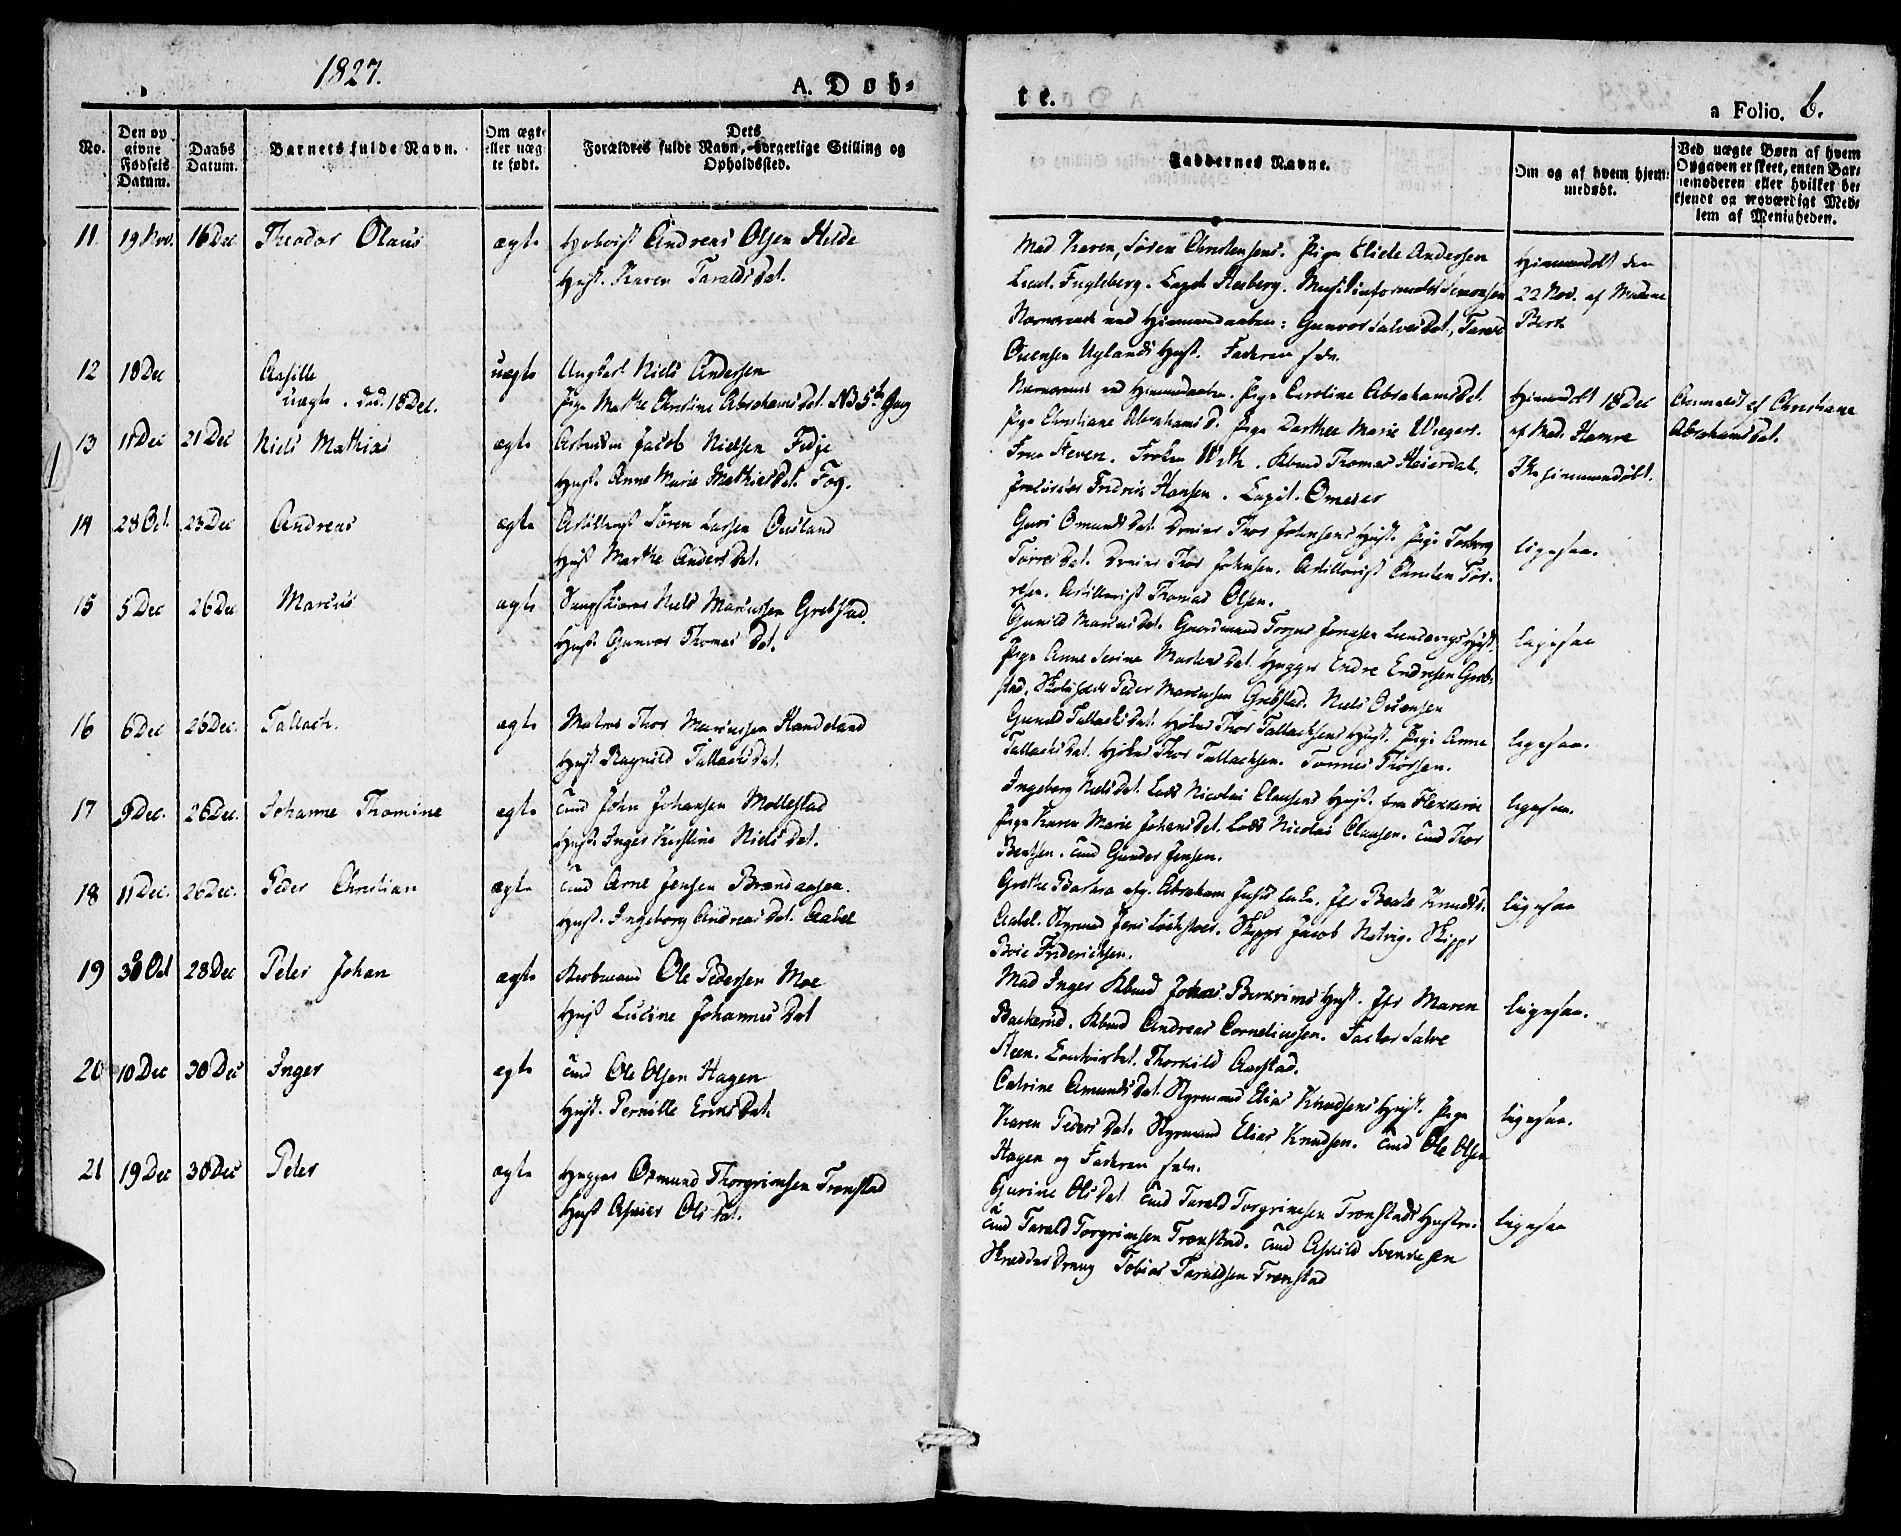 1827.
A. Døb-
te.
a Folio. 6.
No.
Den op
givne
Fødsels
Datum.
Daabs
Datum.
Barnets fulde Navn.
Om ægt-
eller uæg
te født.
Dets
Forældres fulde Navn, borgerlige Stilling og
Opholdssted.
Faddernes Navne.
Om og af hvem hjem-
medøbt.
Ved uægte Børn af hvem
Opgaven er skeet, enten Bar-
nemoderen eller hvilket be-
kjendt og troværdigt Med-
lem af Menigheden.
11 19 Nov. 16 Dec Theodor Olaus ægte Andreas Olsen Helde
Hust. Karen Taralds Dat.
Mad Karen, Søren Christensens. Pige Elide Andersen
Lieut. Fugleberg. Capt. Musikinformator Simonsen
Nærværende ved Hjemmedaaben: Gunvor Salves Dat, Tarald
Ouensen Uglands Hust. Faderen selv.
Hjemmedøbt den
22 Nov. af Madame
Berx
12 18 Dec Aasille
uægte. død. 18 Dec.
uægte Ungkarl Niels Andersen
Pige Marthe Christine Abrahams Dat. No 5
Nærværende ved Hjemmedaaben. Pige Caroline Abrahams Dat.
Pige Christiane Abrahams D. Pige Dorthea Marie Wiegers.
Hjemmedøbt 18 Dec
af Mad. Hamre
Anmeldt af Christiane
Abrahams Dat.
13 11 Dec 21 Dec Niels Mathias ægte Jacob Nielsen Fedje
Hust. Anne Marie Mathias Dat. Foy.
Frue Steven. Frøken With. Kbmd Thomas Heierdal.
Fredrik Hansen. Capit. Omeyer
Ikke hjemmedøbt.
14 28 Oct. 23 Dec Andreas ægte Artillerist Søren Larsen Ousland
Hust Marthe Anders Dat.
Guri Omunds Dat. Thor Johnsens Hust. Pige Torborg
Torres Dat. Thor Johnsen. Artillerist Christen Tør-
resen. Artillerist Thomas Olsen.
ligesaa.
15 5 Dec 26 Dec Marcus ægte Niels Marcussen Grebstad.
Hust. Gunvor Thomas Dat.
Gunild Marcus Dat. Gaardmand Torjus Jonasen Lundevigs Hust.
Pige Anne Serine Mortens Dat. Hugger Endre Endresen Greb-
stad. Peder Marcussen Grebstad. Niels Ouensen
ligesaa
16 6 Dec 26 Dec. Tallack. ægte Matros Thor Marcussen Handeland
Hust Ragnild Tallacks Dat.
Gunild Tallacks Dat. Høker Thor Tallacksens Hust. Pige Anne
Tallacks Dat. Høker Thor Tallacksen. Tønnes Thorsen.
ligesaa.
17 9 Dec. 26 Dec. Johanne Thomine ægte Tmd John Johansen Mollestad
Hust. Inger Kirstine Niels Dat.
Ingeborg Niels Dat. Lods Nicolai Clausens Hust. fra Flekkerøe
Pige Karen Marie Johans Dat. Lods Nicolai Clausen. Tmd Thor
Bentsen. Tmd Gunder Jensen.
ligesaa.
18 11 Dec. 26 Dec. Peder Christian ægte Tmd Arne Jensen Brandaasen.
Hust. Ingeborg Andreas Dat. Aabel
Grethe Barbara Abraham Jfr Beate Knudts.
Aabel. Styrmd Jens Løchstøer. Skippr Jacob Natvig. Skippr
Boie Friderichsen.
ligesaa
19 30 Oct 28 Dec Peter Johan ægte Kiøbmand Ole Pedersen Moe
Hust Lucine Johannes Dat
Mad Inger Kbmd Johns Birkrims Hust. Jfr Maren
Backerud. Kbmd Andreas Corneliussen. Factor Salve
Steen. Thorkild Aarstad.
ligesaa.
20 10 Dec 30 Dec Inger ægte Tmd Ole Olsen Hagen
Hust. Pernille Eriks Dat.
Catrine Amunds Dat. Styrmand Elias Knudsens Hust. Pige
Karen Peders Dat. Styrmand Elias Knudsen. Tmd Ole Olsen
Hagen og Faderen selv.
ligesaa.
21 19 Dec 30 Dec Peter ægte Hugger Osmund Thorgrimsen Tronstad
Hust Ols Dat.
Gurine Ols Dat. Tmd Tarald Torgrimsen Tronstads Hustr.
Tmd Tarald Torgrimsen Tronstad. Tmd Askild Svendsen
Skrædder Dreng Tobias Taraldsen Tronstad
ligesaa